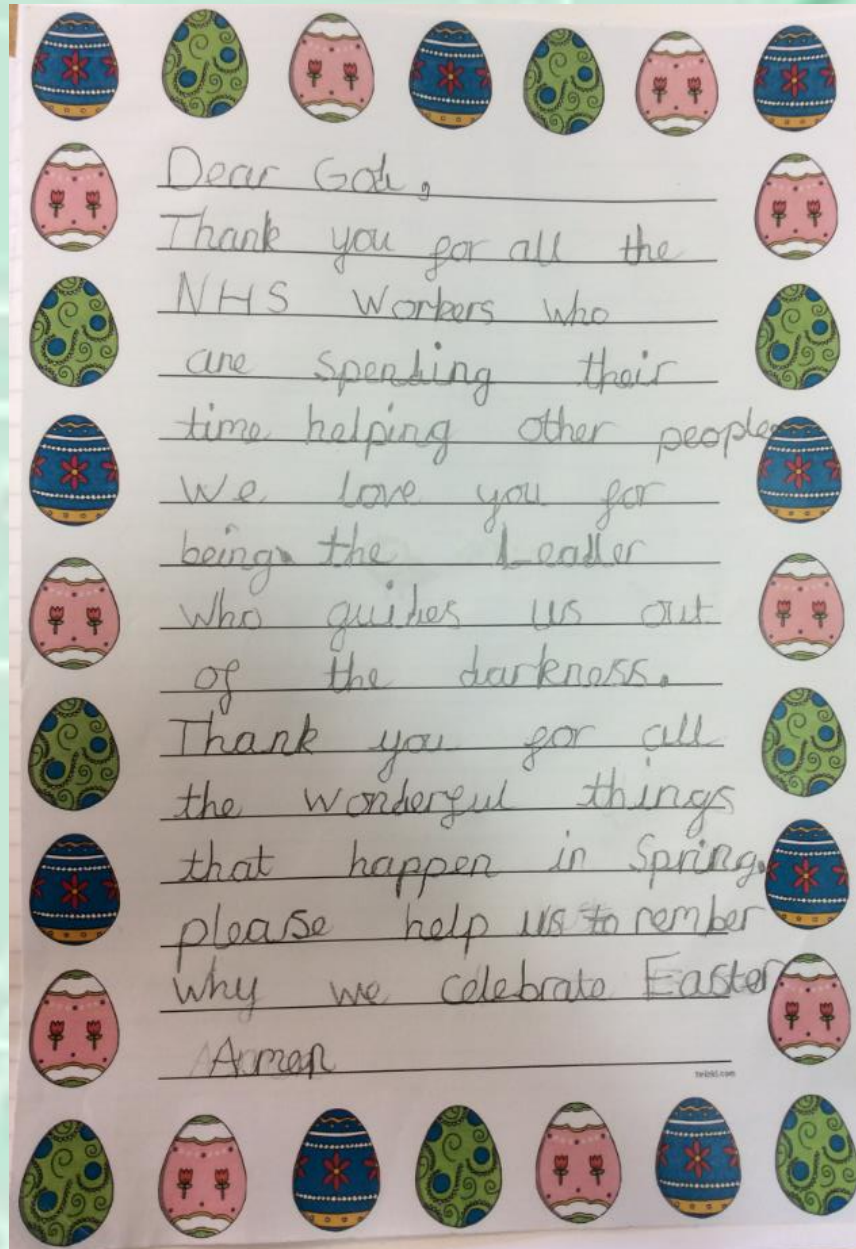 Dear God,
Thank you for all the
NHS workers who
are spending their
time helping other people
we love you for
being the Leader
who guides us out
of the darkness.
Thank you for all
the wonderful things
that happen in Spring.
please help us to rember
why we celebrate Easter
Amen
twinkl.com